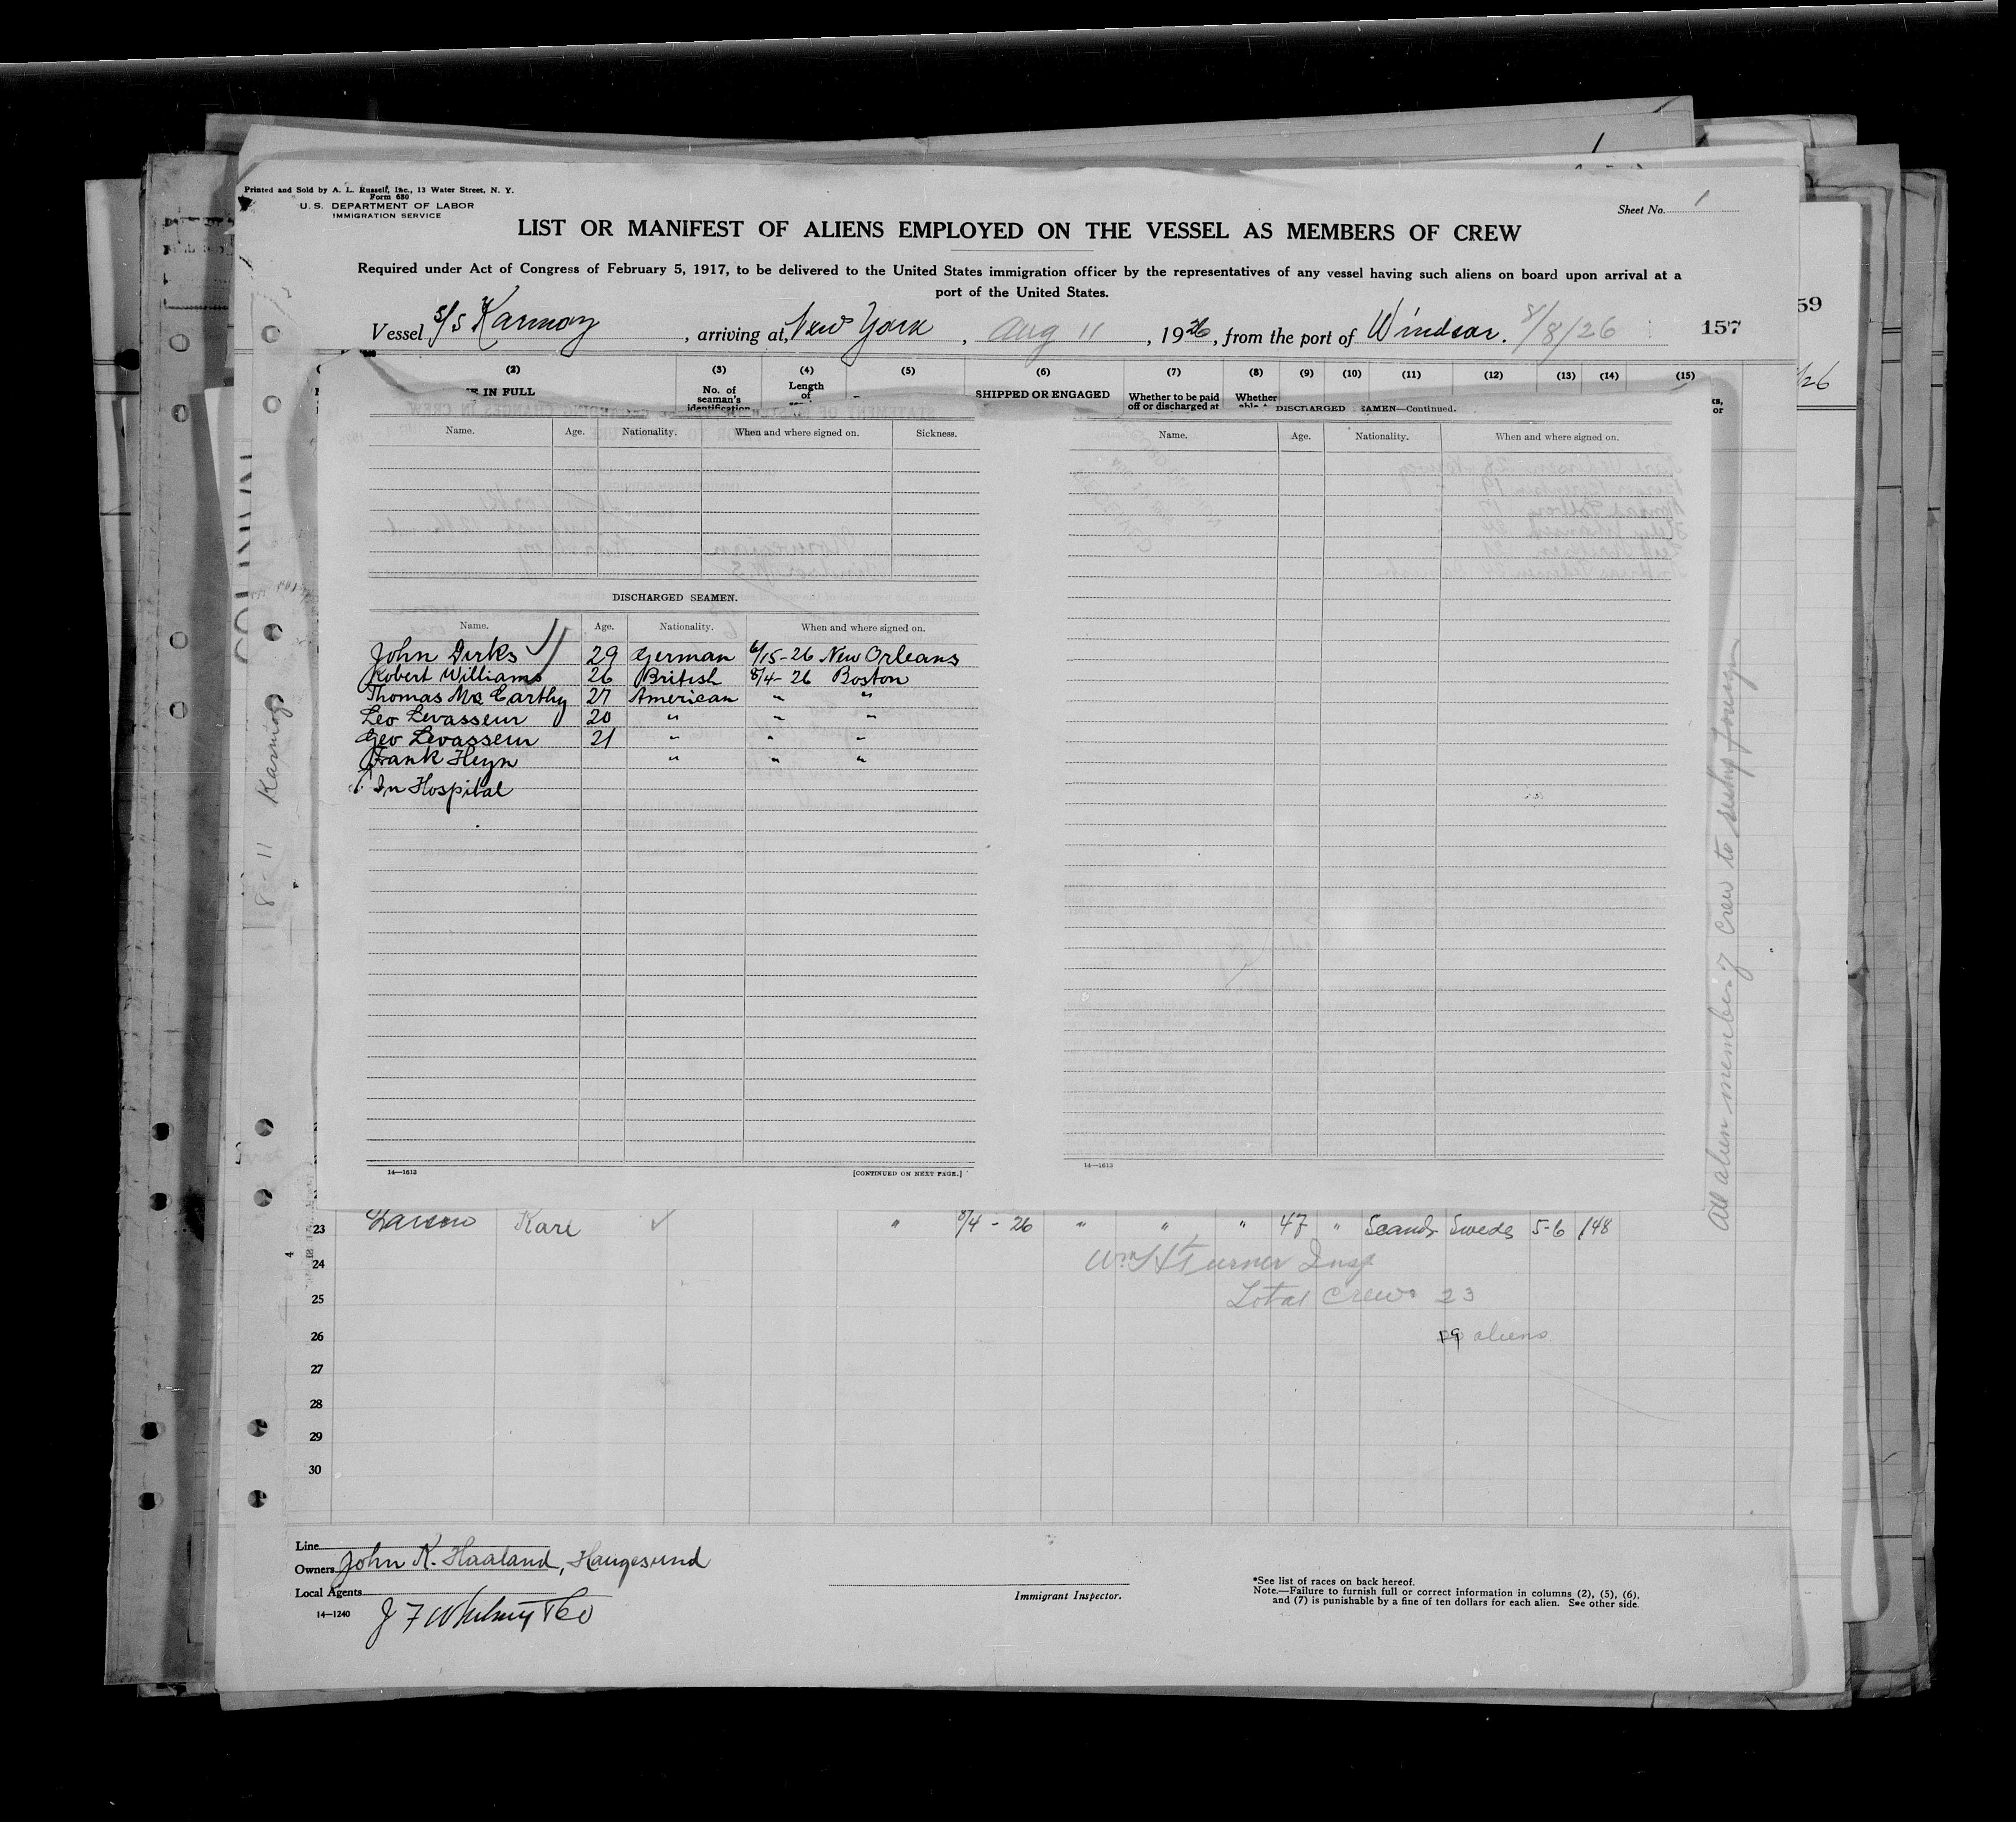 Printed and Sold by A. L. Russell, Inc., 13 Water Street, N. Y.
Form 680
U. S. DEPARTMENT OF LABOR
IMMIGRATION SERVICE
Sheet No. 1
LIST OR MANIFEST OF ALIENS EMPLOYED ON THE VESSEL AS MEMBERS OF CREW
Required under Act of Congress of February 5, 1917, to be delivered to the United States immigration officer by the representatives of any vessel having such aliens on board upon arrival at a
port of the United States.
Vessel S/S Karmoy, arriving at New York, Aug 11, 1926, from the port of Windsor. 8/8/26
157
59
/26
(2) (3) (4) (5) (6) (7) (8) (9) (10) (11) (12) (13) (14) (15)
IN FULL
No. of seaman's identification
Length of
SHIPPED OR ENGAGED
Whether to be paid off or discharged at
Whether
DISCHARGED SEAMEN—Continued.
Name. Age. Nationality. When and where signed on. Sickness.
Name. Age. Nationality. When and where signed on.
DISCHARGED SEAMEN.
Name. Age. Nationality. When and where signed on.
John Dirks 29 German 6/15-26 New Orleans
Robert Williams 26 British 8/4-26 Boston
Thomas Mc Carthy 27 American " "
Leo Levasseur 20 " " "
Geo Levasseur 21 " " "
Frank Heyn " " "
In Hospital
14—1613
[CONTINUED ON NEXT PAGE.]
14—1613
All alien members of crew to reship foreign
8-11 Karmoy
23 Larson Karl " 8/4 - 26 " " " 47 " Scand Swede 5-6 148
24 Wm H Turner Insp
25 Total Crew 23
26 19 aliens
27
28
29
30
Line
Owners John K. Haaland, Haugesund
Local Agents
14—1240
J F Whitney & Co
Immigrant Inspector.
*See list of races on back hereof.
Note.—Failure to furnish full or correct information in columns (2), (5), (6),
and (7) is punishable by a fine of ten dollars for each alien. See other side.